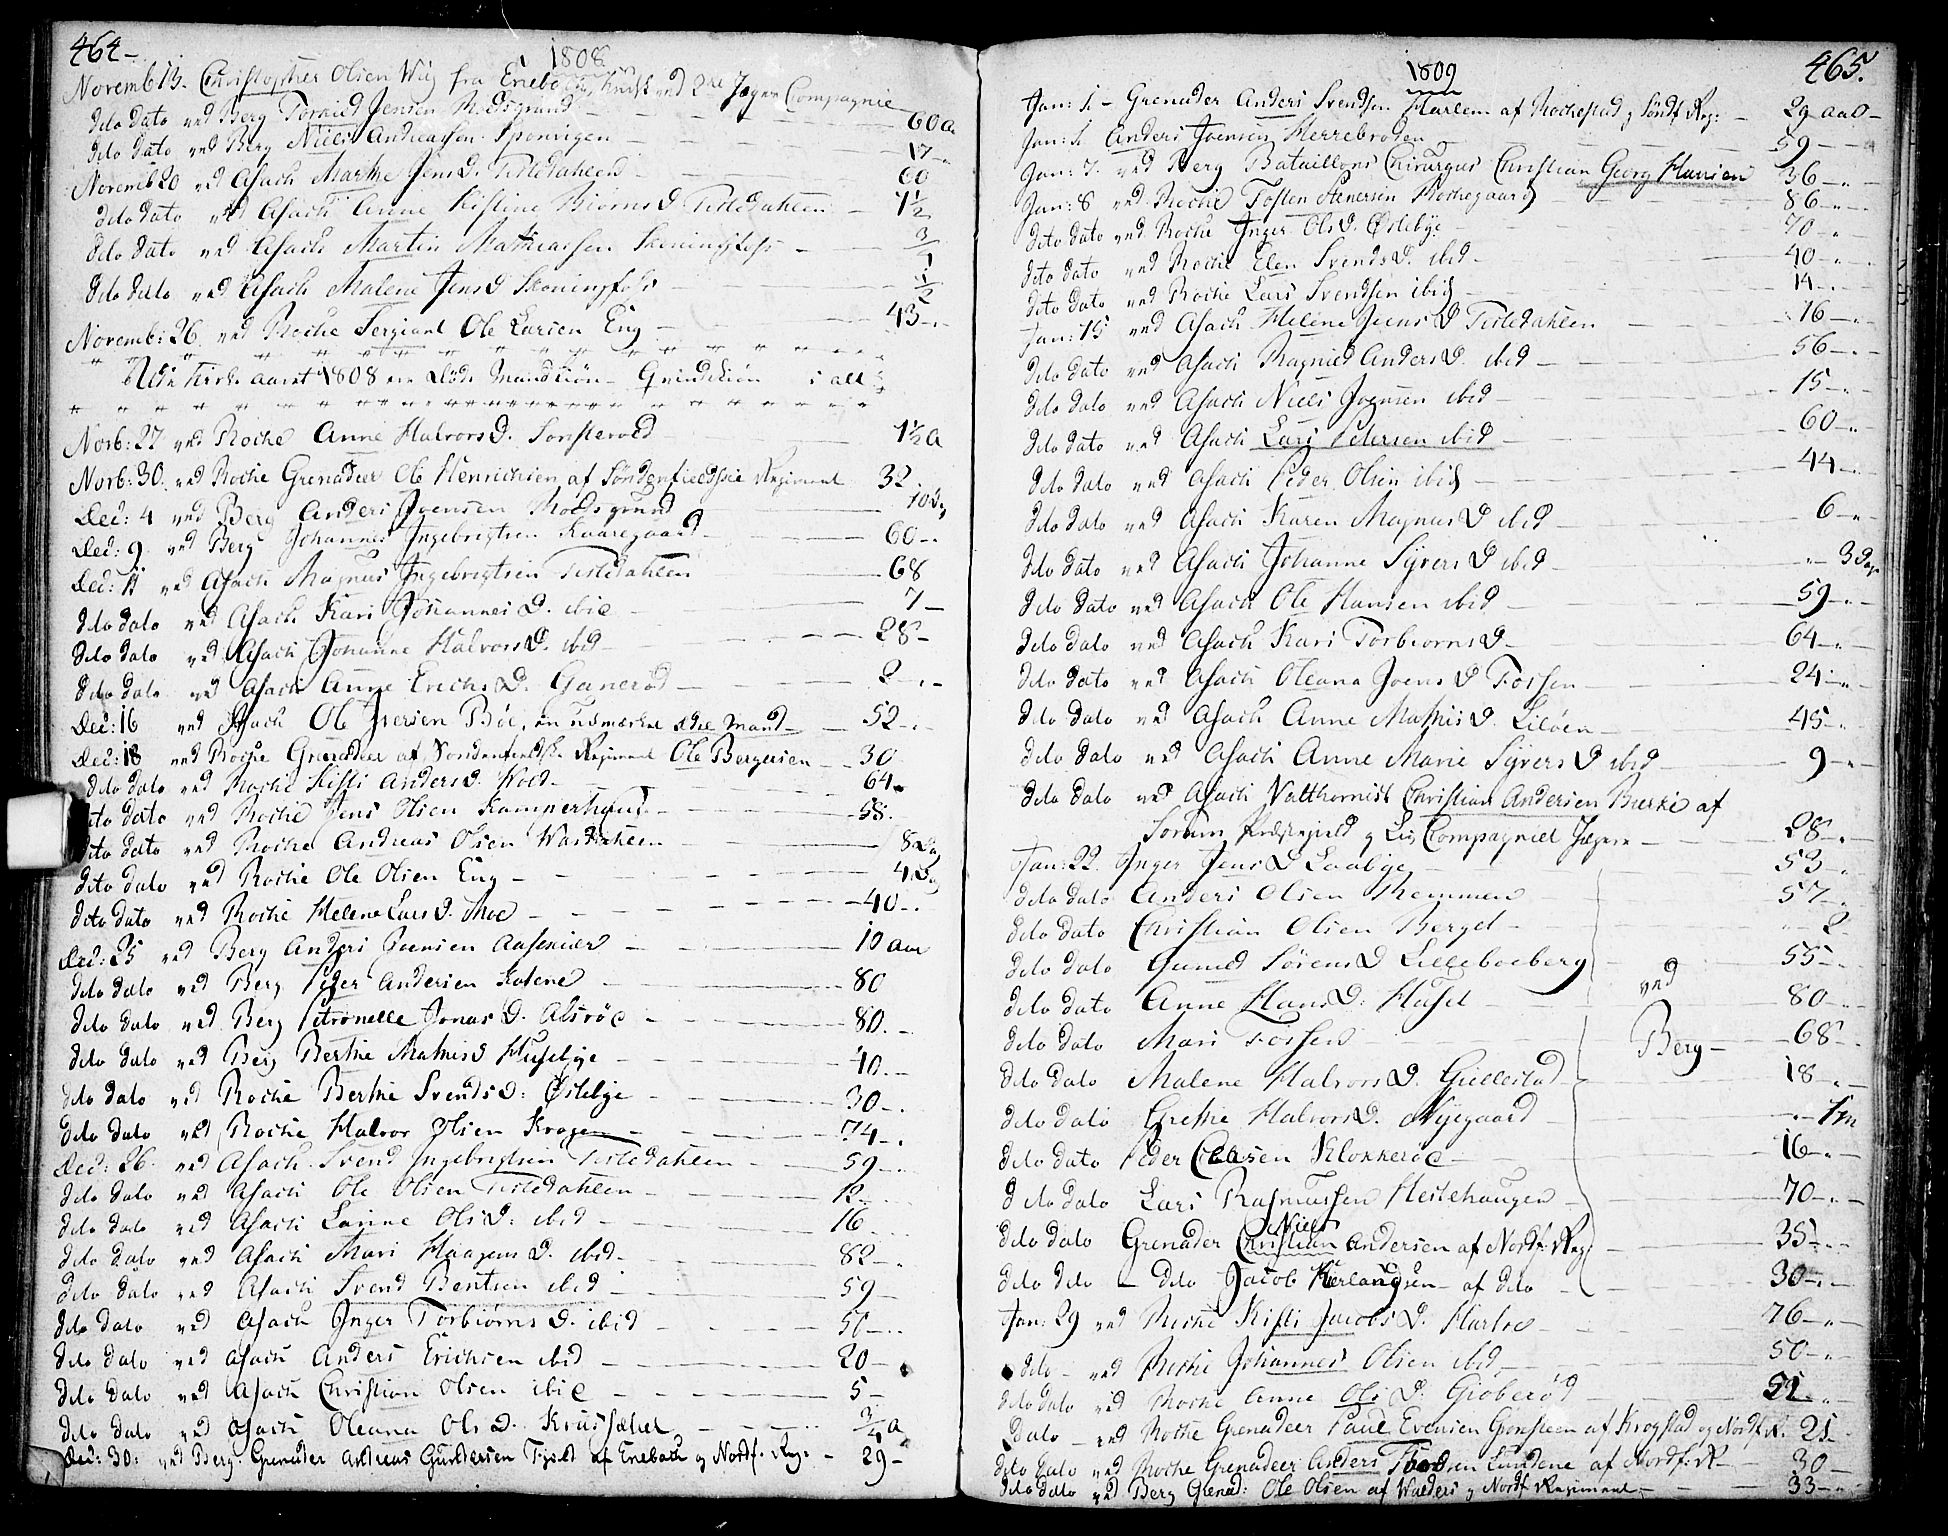 464-
1808
Novemb: 13. Christopher Olsen Wiig fra Eneba Knegt ved 2de Jæger Compagnie
dito dato ved Berg Tornild Jensen Rødsgrund 60 a
dito dato ved Berg Niels Andreassen Sponvigen 17
Novemb 20 ved Asach Marthe JensD. Tistedahlen 60
dito dato ved Asach Anne Kistine BiørnsD Tistedahlen 7 1/2
dito dato ved Asach Martin Mathiassen Skoningsfoss 3/4
dito dato ved Asach Malene JensD Skoningsfoss 1 1/2
Novemb: 26. ved Rocke Sergiant Ole Larsen Eng 43
Udi Kirke aaret 1808 ere døde Mandkiøn Qvindekiøn i alt
Norb: 27 ved Rocke Anne HalvorsD. Sonsterød 1 1/2 a
Norb: 30. ved Rocke Grenadeer Ole Henrichsen af Søndenfieldske Regiment 32.
Dec: 4 ved Berg Anders Joensen Rødsgrund 10 Dg
Dec: 9 ved Berg Johannes Ingebrigtsen Kaaregaard 60
Dec: 11 ved Asach Magnus Ingebrigtsen Tistedahlen 68
dito dato ved Asach Kari JohannesD. ibid 7
dito dato ved Asach Johanne HalvorsD. ibid 28
dito dato ved Asach Anne ErichsD. Ganerød 2
Dec: 16 ved Asach Ole Iversen Bøe, en udmerket ædel Mand 52
Dec: 18 ved Rocke Grenadeer af Søndenfieldske Regiment Ole Bergersen 30
dito dato ved Rocke Kisti AndersD. Wold 64
dito dato ved Rocke Jens Olsen Kamperhaug 58
dito dato ved Rocke Andreas Olsen Wasdahlen 8 Dag
dito dato ved Rocke Ole Olsen Eng 4 Dag
dito dato ved Rocke Helene LarsD. Moe 40
Dec: 25 ved Berg Anders Joensen Aasenier 10 aar
dito dato ved Berg Peder Andersen Katene 80
dito dato ved Berg Petronelle JonasD. Alsrøe 80
dito dato ved Berg Berthe MathisD Husebye 40
dito dato ved Rocke Berthe SvendsD: Østebye 30
dito dato ved Rocke Halvor Olsen Kragen 74
Dec: 26. ved Asach Svend Ingebrigtsen Tistedahlen 59
dito dato ved Asach Ole Olsen Tistedahlen 12
dito dato ved Asach Larine OlsD: ibid 16
dito dato ved Asach Mari HaagensD. ibid 82
dito dato ved Asach Svend Bentsen ibid 59
dito dato ved Asach Inger TorbiørnsD. ibid 50
dito dato ved Asach Anders Erichsen ibid 20
dito dato ved Asach Christian Olsen ibid 5
dito dato ved Asach Oleana OlsD. Krusfæltet 3/4 a
Dec: 30: ved Berg. Grenader Andreas Gundersen Fjeld af Enebach og Nordf. Reg: 29
465.
1809
Jan: 1. Grenader Anders Svendsen Harlem af Rochestad og Søndf Reg: 29 aar
Jan: 1. Anders Joensen Herrebrøden 59
Jan: 7. ved Berg Bataillons Chirurgus Christian Georg Hansen 36
Jan: 8 ved Rocke Tosten Stenersen Rochegaard 86
dito dato ved Rocke Inger OlsD. Østebye 70
dito dato ved Rocke Elen SvendsD. ibid 40
dito dato ved Rocke Lars Svendsen ibid 14
Jan: 15 ved Asach Helene JensD Tistedahlen 16
dito dato ved Asach Ragnild AndersD. ibid 56
dito dato ved Asach Niels Joensen ibid 15
dito dato ved Asach Lars Petersen ibid 60
dito dato ved Asach Peder Olsen ibid 44
dito dato ved Asach Karen MagnusD ibid 6
dito dato ved Asach Johanne SyversD ibid 3 Dage
dito dato ved Asach Ole Hansen ibid 59
dito dato ved Asach Kari TorbiornsD 64
dito dato ved Asach Oleana JoensD Fossen 24
dito dato ved Asach Anne MathisD. Liløen 45
dito dato ved Asach Anne Marie SyversD ibid 9
dito dato ved Asach Valthornist Christian Andersen Burkie af
Sorum Præstegield og Compagniet Jægere 28
Jan: 22. Inger JensD Laabye 53
dito dato Anders Olsen Remmen 57
dito dato Christian Olsen Berget 2
dito dato Gunild SørensD Lilleboeberg 55
dito dato Anne HansD: Huset 80
dito dato Mari Fossen 68
dito dato Malene HalvorsD. Gullestad 18
dito dato Grethe HalvorsD. Nyegaard 1 m
dito dato Peder Clasen Klokkerøe 16
dito dato Lars Rasmussen Hestehaugen 70
ved
Berg
Niels
dito dato Grenader Christian Andersen af Nordf: Reg: 35
dito dito - dito Jacob Herlaugsen af dito 30
Jan: 29 ved Rocke Kisti JacobsD. Harloe 76
dito - ved Rocke Johannes Olsen ibid 50
dito dato ved Rocke Anne OlsD. Gioberød 51
Dato - ved Rocke Grenadeer Paul Evensen Gronsteen af Krogstad og Nordf. R. 21
dito dato ved Rocke Grenadeer Anders Thoresen Lundene af Nordf: R 30
dito dato ved Berg Grenad: Ole Olsen af Walders og Nordf Regiment 33